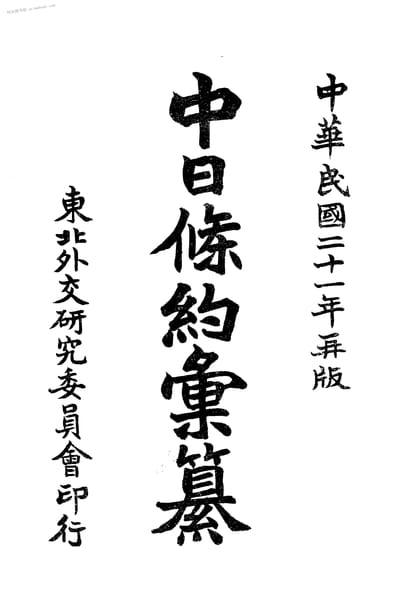 中華民國二十一年再版
中日條約彙纂
東北外交研究委員會印行